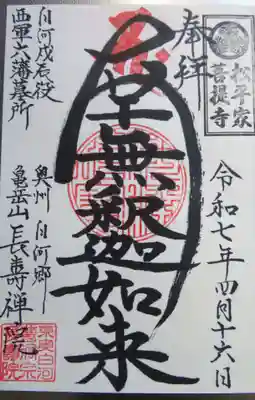 松平家
菩提寺
奉拝
令和七年四月十六日
南無釈迦如来
奥州白河郷
亀岳山長寿禅院
白河戊辰役
西軍六藩墓所